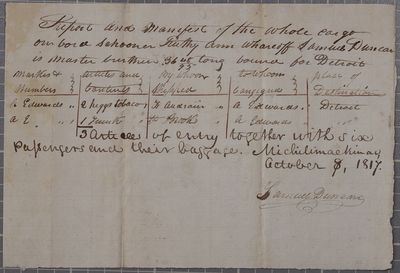 Report and Manifest of the whole cargo
on board Schooner Ann whareoff Samuel Duncan
is Master burthen 36 tons bound for Detroit
Marks & articles and by whom to whom place of
Numbers contents shipped consigned Destination
A Edwards 2 tobacco Audrain A Edwards Detroit
A E. 1 Trunk A Edwards
3 Articles of entry together with six
passengers and their baggage. Michilimackinac
October 8, 1817.
Samuel Duncan